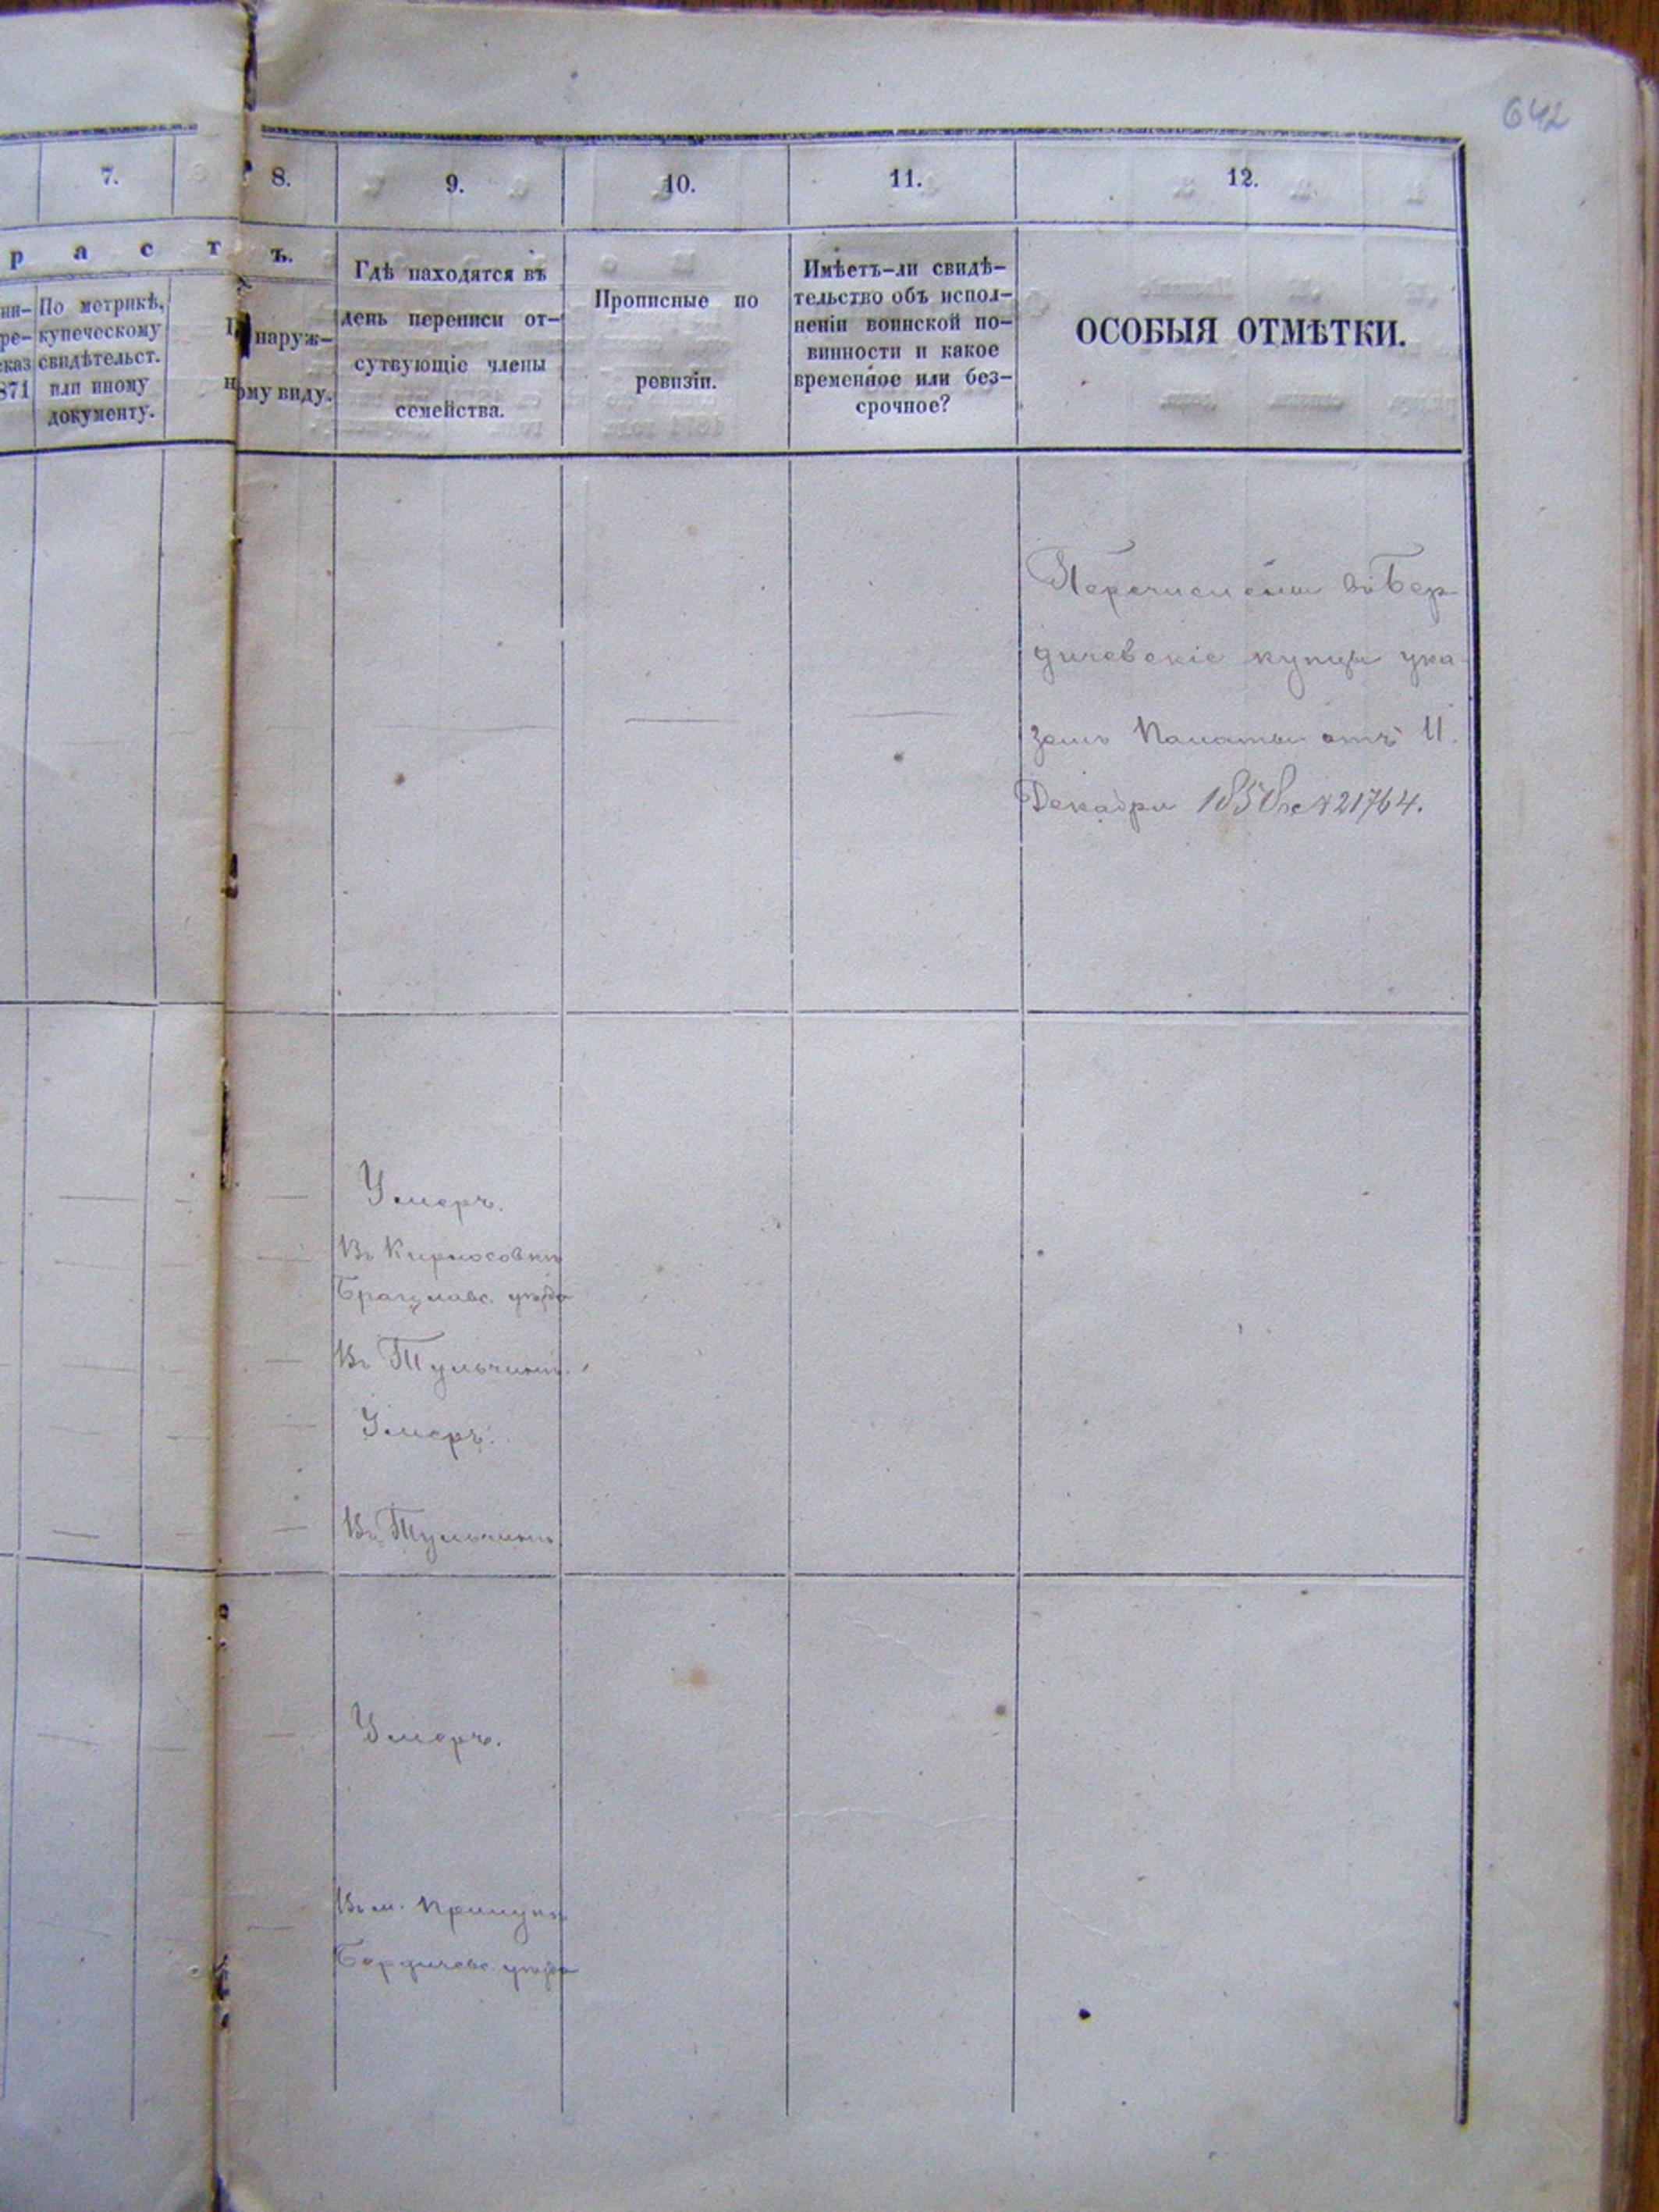 642
7.
8.
9.
10.
11.
12.
р а с т
ъ.
По метрикѣ,
купеческому
свидѣтельст.
или иному
документу.
871
наруж-
ому виду.
Гдѣ находятся въ
день переписи от-
сутвующіе члены
семейства.
Прописные по
ревизіи.
Имѣетъ-ли свидѣ-
тельство объ испол-
неніи воинской по-
винности и какое
временное или без-
срочное?
ОСОБЫЯ ОТМѢТКИ.
Перечислены въ Бер-
дичевскіе купцы ука-
зомъ Палаты отъ 11
Декабря 1858 № 21764.
Умеръ.
Въ Кирнасовкѣ
Брацлавс. уѣзда
Въ Тульчинѣ.
Умеръ.
Въ Тульчинѣ
Умеръ.
Въ м. Прилукѣ
Бердичевс. уѣзда